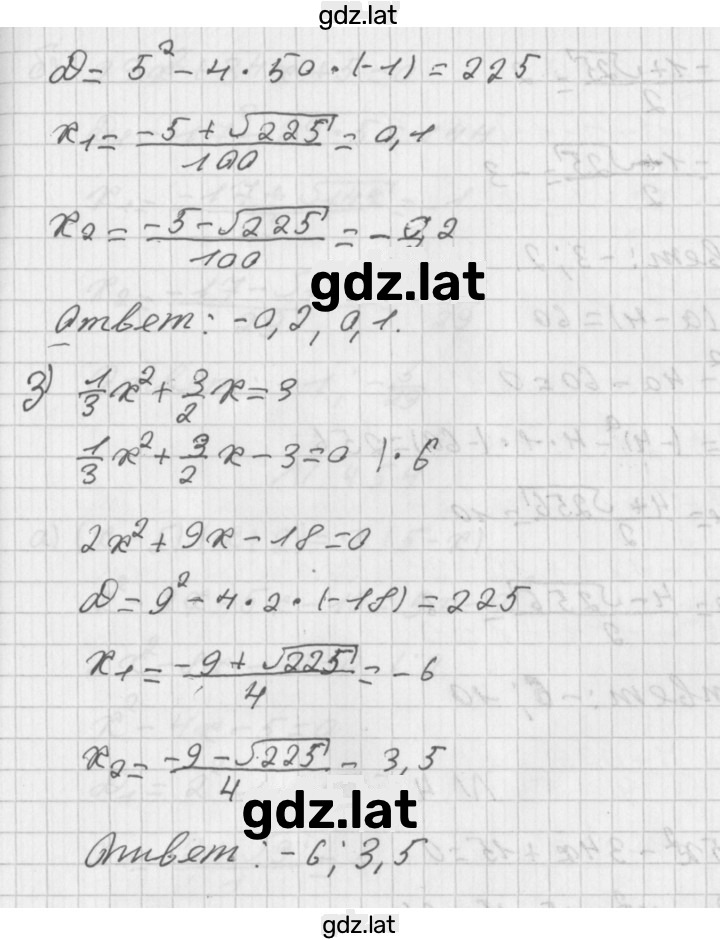 gdz.lat
D = 5² - 4 · 50 · (-1) = 225
x₁ = (-5 + √225)/100 = 0,1
x₂ = (-5 - √225)/100 = -0,2
gdz.lat
Ответ: -0,2, 0,1.
3) 1/3 x² + 3/2 x = 3
1/3 x² + 3/2 x - 3 = 0 | · 6
2x² + 9x - 18 = 0
D = 9² - 4 · 2 · (-18) = 225
x₁ = (-9 + √225)/4 = -6
x₂ = (-9 - √225)/4 - 3,5
gdz.lat
Ответ: -6; 3,5
gdz.lat